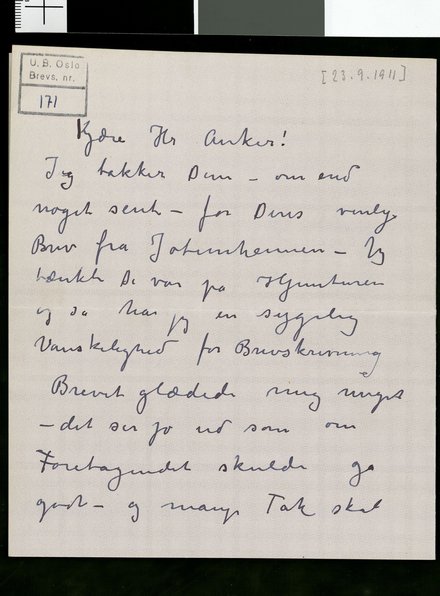 U. B. Oslo
Brevs. nr.
171
[23.9.1911]
Kjære Hr Anker!
Jeg takker Dem – om end
noget sent – for Deres venlige
Brev fra Jotunheimen – Jeg
tænkte De var på Hjemturen
og så har jeg en sygelig
Vanskelighed for Brevskrivning
Brevet glædede mig meget
– det ser jo ud som om
Foretagendet skulde gå
godt – og mange Tak skal